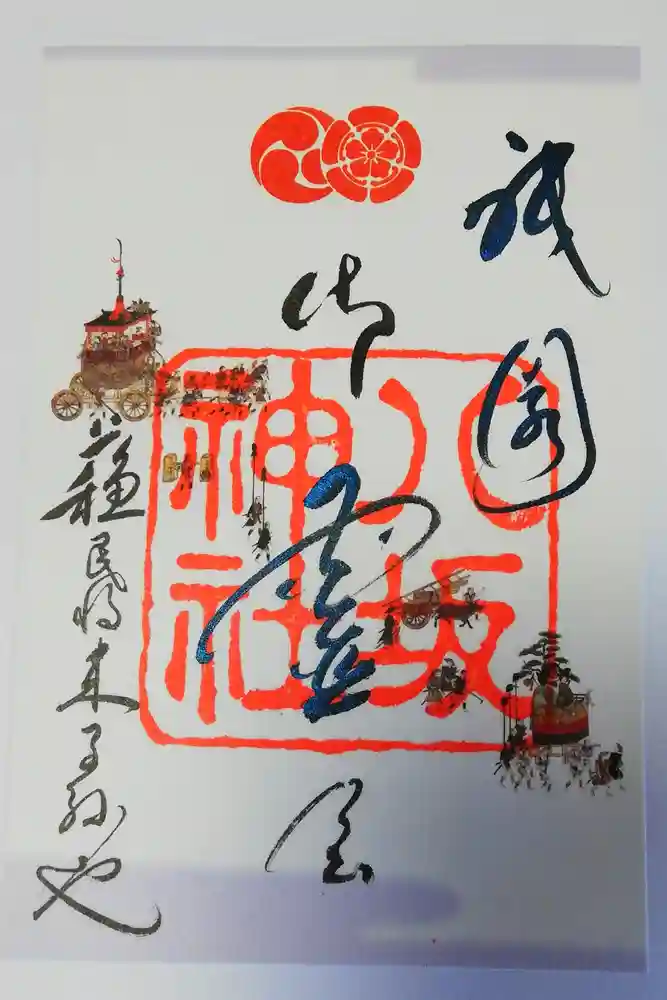 祇園
御霊会
蘓民将来子孫也
八坂
神社